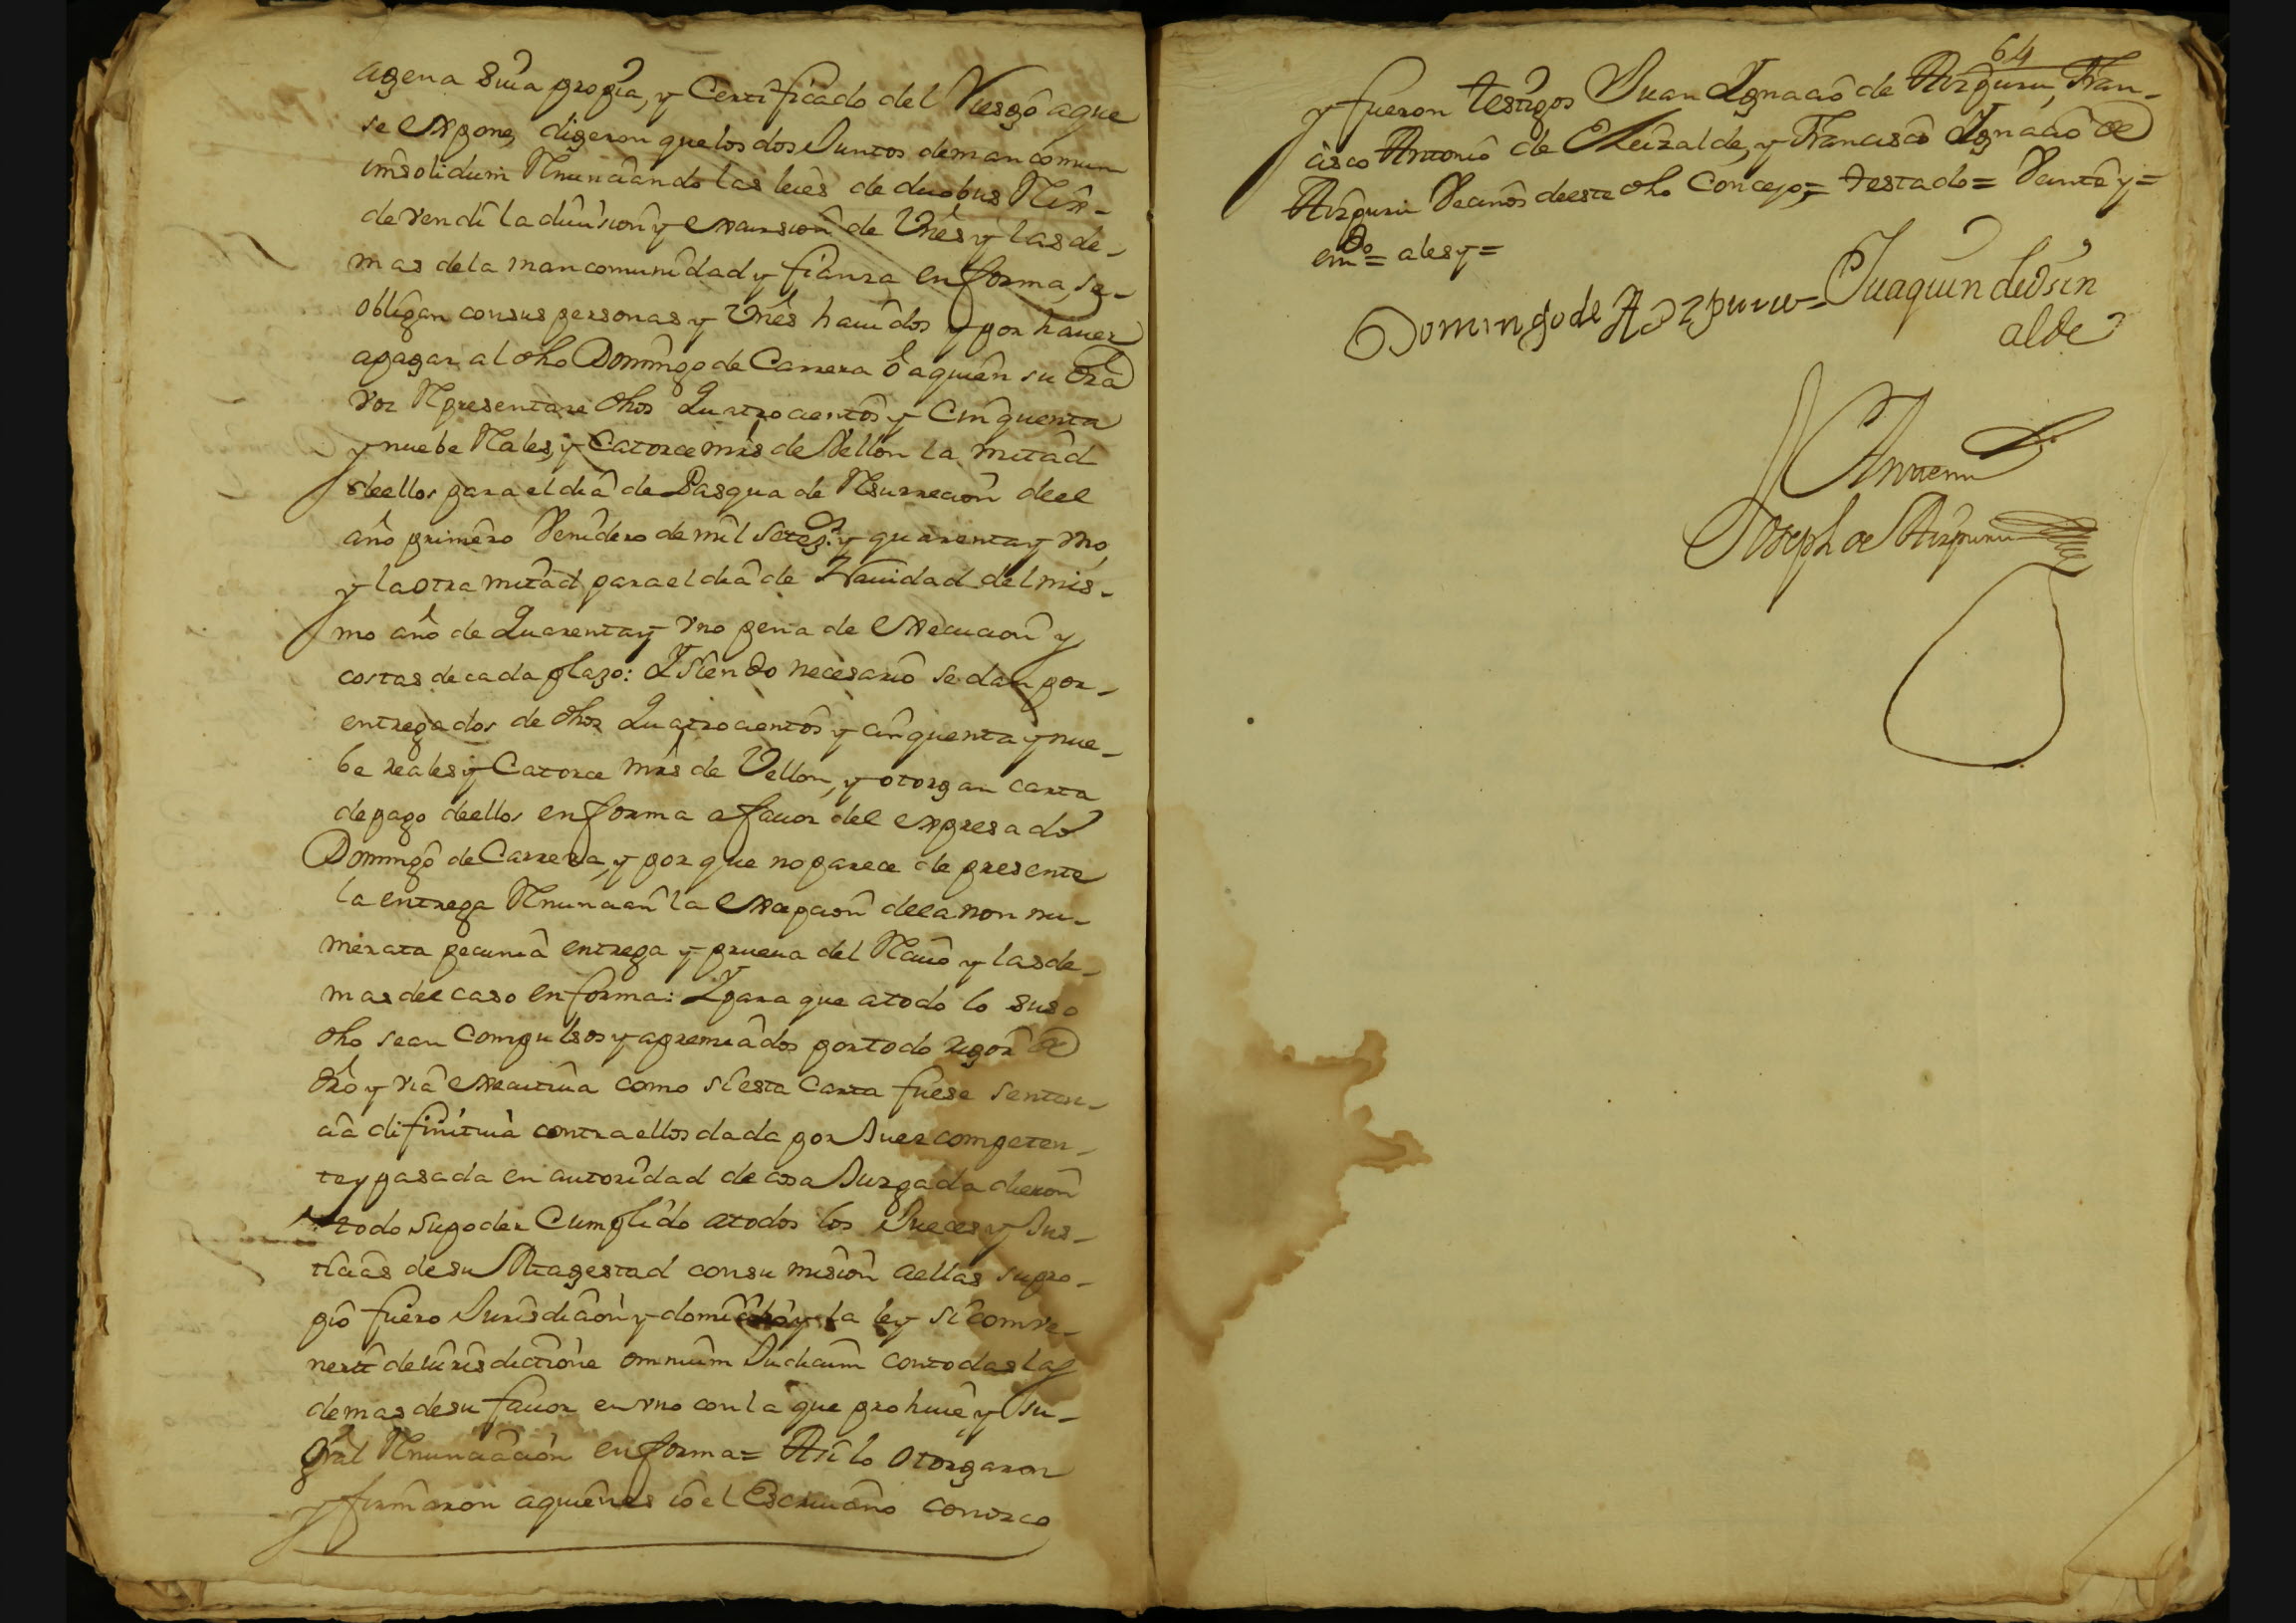 agena suia propia, y Certificado del Riesgo a que
se expone, digeron que los dos Juntos de man comun
imsolidum Renunciando las leies de duobus Rex-
de vendi la diuision y excursion de Vnes y las de-
mas de la mancomunidad y fianza en forma, se-
obligan con sus personas y Vnes hauidos y por hauer
a pagar al dho Domingo de Carrera o a quien su dra
voz Representare dhos Quatrocientos y Cinquenta
y nuebe Rales, y Catorce mrs de Vellon la mitad
de ellos para el dia de Pasqua de Resurrecion de el
año primero Venidero de mil setezs. y quarenta y vno
y la otra mitad para el dia de Nauidad del mis-
mo año de Quarenta y vno pena de execucion y
costas de cada plazo: Y siendo necesario se dan por-
entregados de dhos Quatrocientos y cinquenta y nue-
be reales y Catorce mrs de Vellon, y otorgan carta
de pago de ellos en forma a fauor del expresado
Domingo de Carrera, y por que no parece de presente
la entrega Renuncian la excepcion de la non nu-
merata pecunia entrega y prueua del Reciuo y las de-
mas del caso en forma: Y para que a todo lo suso
dho sean Compulsos y apremiados por todo rigor de
dro y via executiua como si esta Carta fuese senten-
cia difinitiua contra ellos dada por Juez competen-
te y pasada en autoridad de cosa Juzgada dieron
todo su poder Cumplido a todos los Jueces y Jus-
ticias de su Magestad con su mision a ellas su pro-
pio fuero Jurisdicion y domicilio y la ley si comve-
nerit de iurisdictione omnium Judicum con todas las
demas de su fauor en vno con la que prohiue y su-
gral Renunciacion en forma = Asi lo otorgaron
y firmaron a quienes io el Escriuano conozco
64
y fueron testigos Juan Ygnacio de Aizpuru, Fran-
cisco Antonio de Eleizalde, y Francisco Ygnacio de
Aizpuru Vecinos de este dho Concejo = testado = Veinte y =
emdo = ales y =
Domingo de Aizpuru = Juaquin de
alde
Antemi
Joseph de Aizpuru